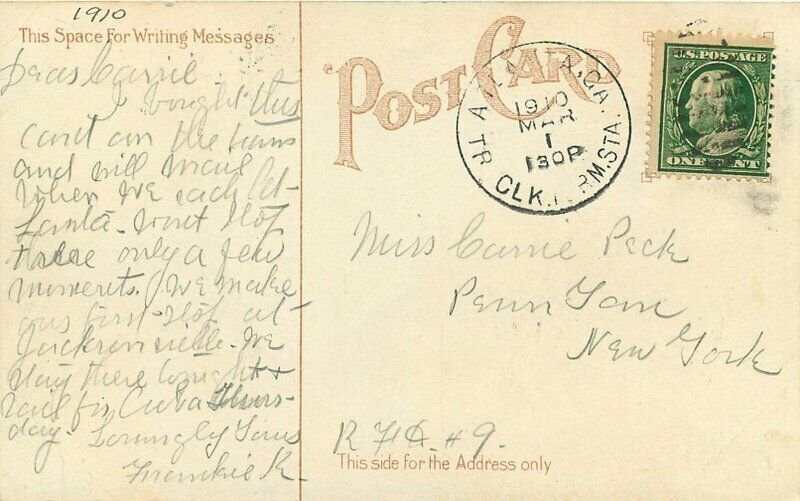 1910
This Space For Writing Messages
Dear Carrie
I bought this
card on the train
and will mail
when we reach At-
lanta. Wont stop
there only a few
moments. We make
our first stop at
Jacksonville. We
stay there tonight +
sail for Cuba Thurs-
day. Lovingly Yours
Frankie K.
POST CARD
ATLANTA, GA.
1910
MAR
1
130P
TR. CLK. TERM. STA.
U.S. POSTAGE
ONE CENT
Miss Carrie Peck
Penn Yan
New York
R F D. #9.
This side for the Address only